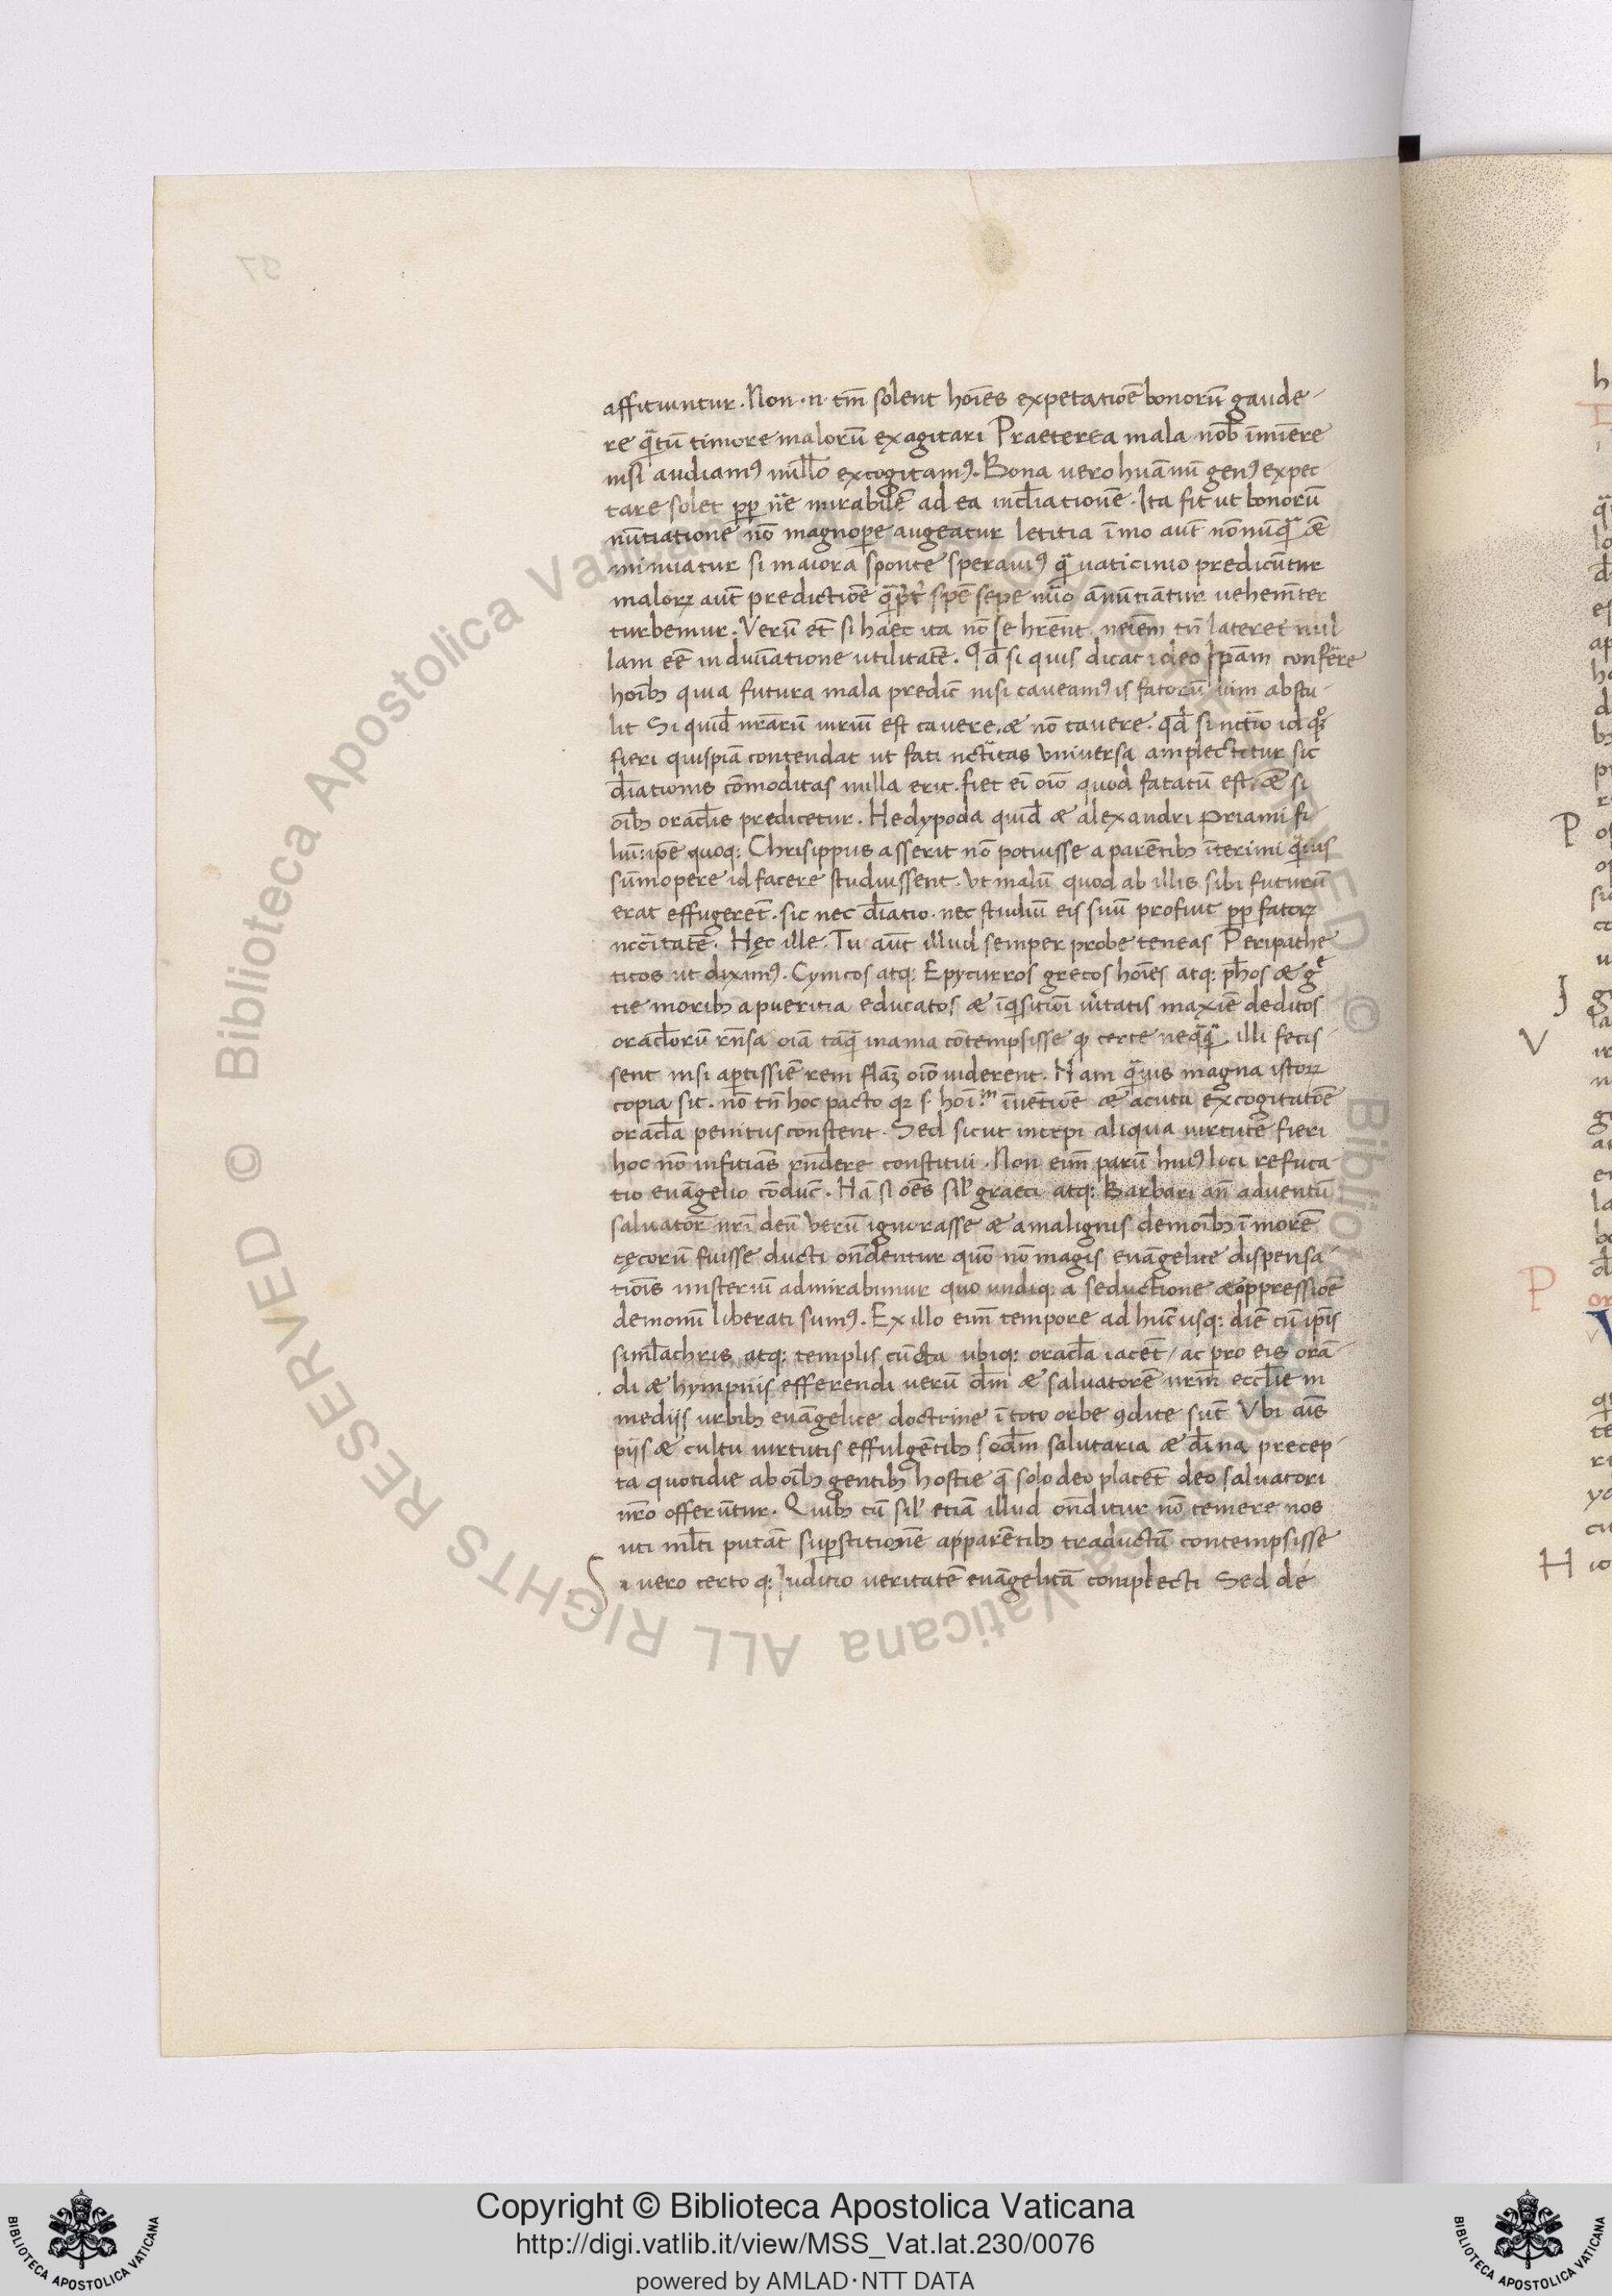 affitiuntur. Non .n. tm̄ solent hoīes expetatiōe bonorū gaude-
re q̄tū timore malorū exagitari Praeterea mala nob̄ īmīere
nisi audiamꝰ nullo excogitamꝰ. Bona uero huānū genꝰ expec
tare solet ꝓp nē mirabilē ad ea inclīationē. Ita fit ut bonorū
nūtiatione nō magnopere augeatur letitia īmo aut̄ nōnūq̄
minuatur si maiora sponte sperauiꝰ q̄ uaticinio predicūtur
maloꝝ aut̄ predictiōe spē sepe ānūtiātur uehemēter
turbemur. Verū et̄ si haec ita nō se hrēnt. neīem tn̄ lateret nul
lam eē in diuīatione utilitatē. Qd̄ si quis dicat ideo ipām conferre
hoīb; quia futura mala predic̄ nisi caueamꝰ is fatorū uim abstu-
lit Si quid̄ nr̄arū uiriū est cauere. æ nō cauere. qd̄ si nc̄c̄io id
fieri quispiā contendat ut fati nc̄c̄itas vniuersa amplectitur sic
dīationis cōmoditas nulla erit. fiet eī oīo quod fatatū est. æ si
oīb; oraclīs predicetur. Hedypoda quid̄ æ alexandri Priami fi-
liū: ipē quoq: Chrisippus asserit nō potuisse a parētib; īterimi q̄uis
sūmopere id facere studuissent. Vt malū quod ab illis sibi futurū
erat effugerēt. sic nec dīatio. nec studiū eis suū profuit ꝓp fatoꝝ
nc̄c̄itatē. Hęc ille. Tu aut̄ illud semper probe teneas Peripathe
ticos ut diximꝰ. Cynicos atq: Epycurros grecos hoīes atq: ph̄os æ g̃
tie morib; a pueritia educatos æ īq̇sitiōi uītatis maxīe deditos
oraclorū rn̄sa oīa tāq̄ inania cōtempsisse certe neq̄q̄ illi fecis
sent nisi ap̄tissīe rem flāȝ oīo uiderent. Nam q̄uis magna istoꝝ
copia sit. nō tn̄ hoc pacto s. hoī.m īuētiōe æ acuta excogitatōe
oracla penitus constent. Sed sicut incepi aliqua uirtute fieri
hoc nō infitiās rn̄dere constitui. Non enī parū huiꝰ loci refuta-
tio euāgelio cōduc̄. Nā si oēs sil̄ graeci atq: Barbari an̄ aduentū
saluatoris nr̄i deū verū ignorasse æ a malignis demoīb; ī morē
pęcorū fuisse ducti on̄dentur quō nō magis euāgelice dispensa-
tiōis misteriū admirabimur quo undiq: a seductione æ oppressiōe
demonū liberati sumꝰ. Ex illo enī tempore ad hūc usq: diē cū ipīs
simlachris atq: templis cūcta ubiq: oracla iacēt / ac pro eis orā-
di æ hympnis efferendi uerū dm̄ æ saluatorē nrm̄ ecclīe in
medijs urbib; euāgelice doctrine ī toto orbe ꝯdite sūt Vbi aīs
pijs æ cultu uirtutis effulgētib; scdm̄ salutaria æ dīna precep-
ta quotidie ab oīb; gentib; hostie q̄ solo deo placēt deo saluatori
nr̄o offerūtur. Quib; cū sil̄ etiā illud on̄ditur nō temere nos
uti ml̄ti putāt sup̄stitionē apparētib; traductā contempsisse
Si uero certo q: Iuditio ueritatē euāgelicā complecti Sed de
Copyright © Biblioteca Apostolica Vaticana
http://digi.vatlib.it/view/MSS_Vat.lat.230/0076
powered by AMLAD·NTT DATA